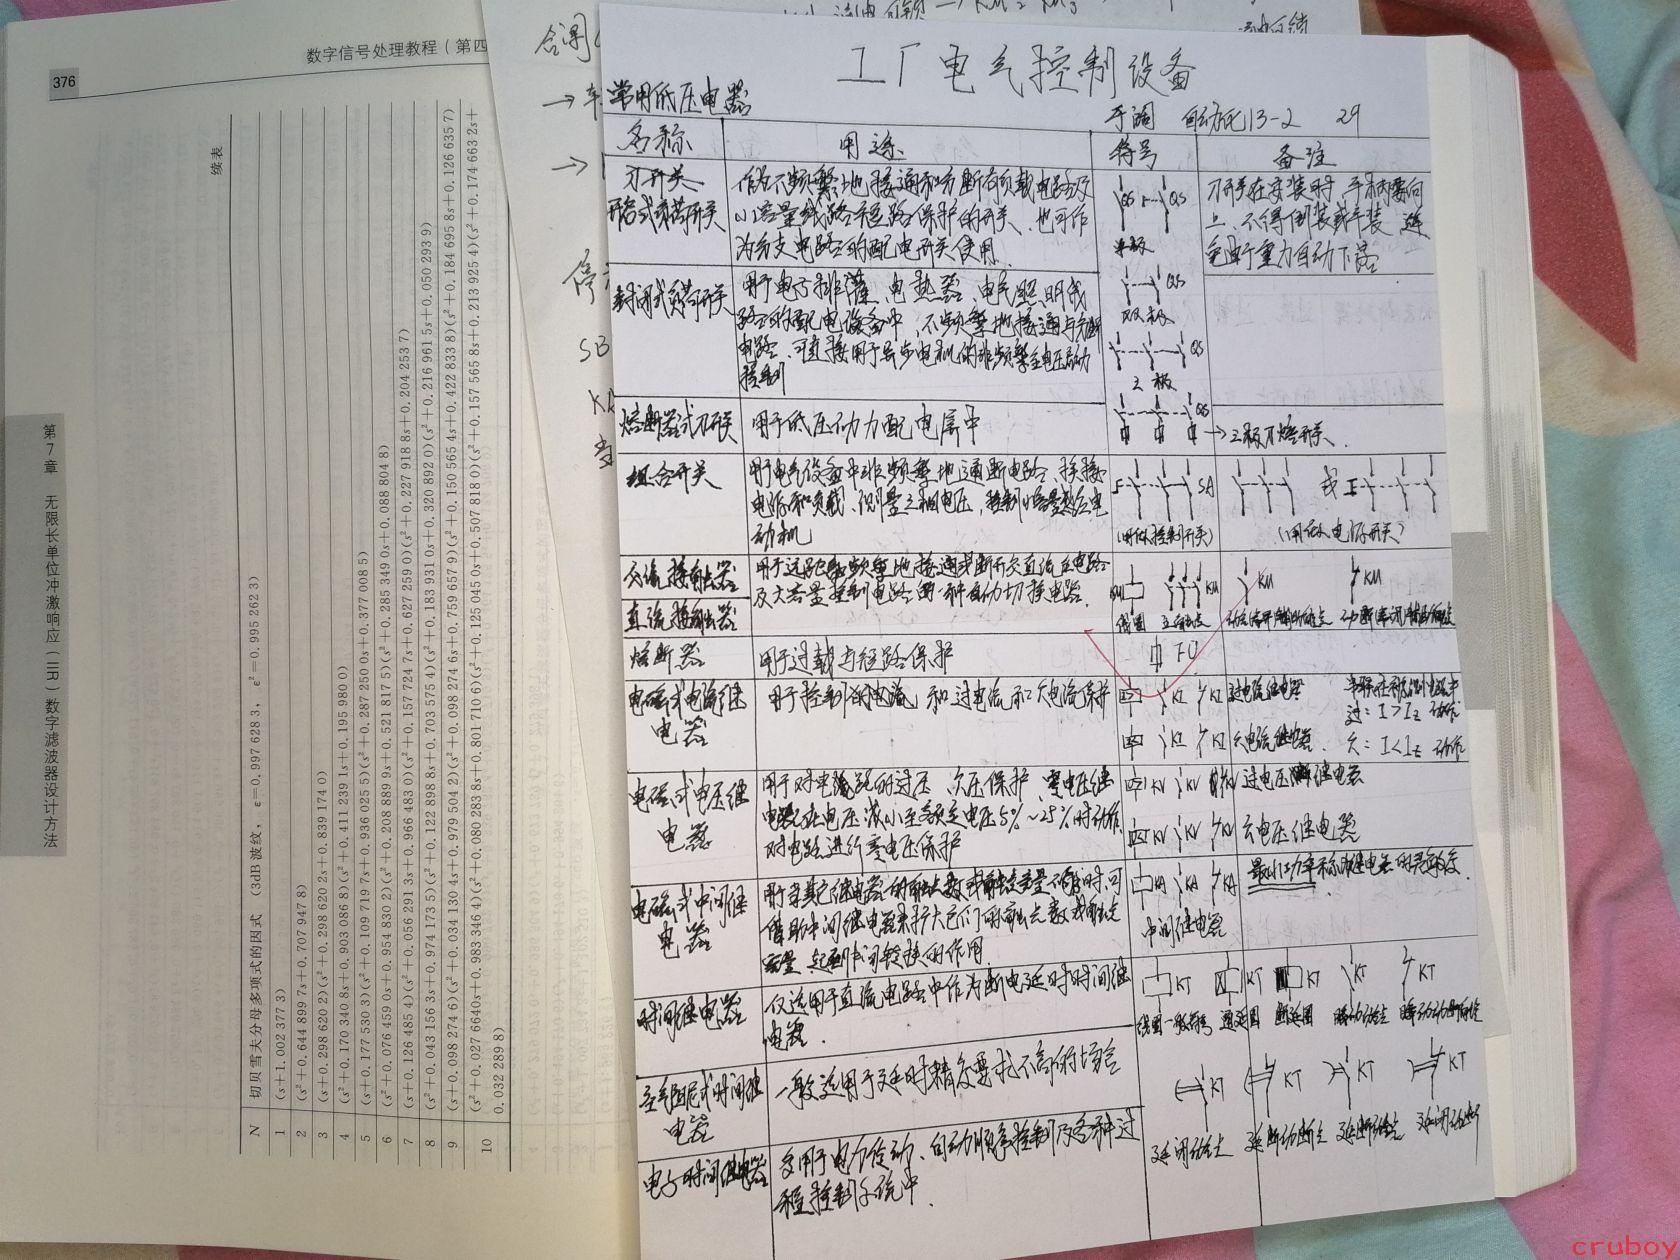 数字信号处理教程(第四
376
第7章 无限长单位冲激响应(IIR)数字滤波器设计方法
续表
N 切贝雪夫分母多项式的因式 (3dB波纹, ε=0.997 628 3, ε²=0.995 262 3)
1 (s+1.002 377 3)
2 (s²+0.644 899 7s+0.707 947 8)
3 (s+0.298 620 2)(s²+0.298 620 2s+0.839 174 0)
4 (s²+0.170 340 8s+0.903 086 8)(s²+0.411 239 1s+0.195 980 0)
5 (s+0.177 530 3)(s²+0.109 719 7s+0.936 025 5)(s²+0.287 250 0s+0.377 008 5)
6 (s²+0.076 459 0s+0.954 830 2)(s²+0.208 889 9s+0.521 817 5)(s²+0.285 349 0s+0.088 804 8)
7 (s+0.126 485 4)(s²+0.056 291 3s+0.966 483 0)(s²+0.157 724 7s+0.627 259 0)(s²+0.227 918 8s+0.204 253 7)
8 (s²+0.043 156 3s+0.974 173 5)(s²+0.122 898 8s+0.703 575 4)(s²+0.183 931 0s+0.320 892 0)(s²+0.216 961 5s+0.050 293 9)
9 (s+0.098 274 6)(s²+0.034 130 4s+0.979 504 2)(s²+0.098 274 6s+0.759 657 9)(s²+0.150 565 4s+0.422 833 8)(s²+0.184 695 8s+0.126 635 7)
10 (s²+0.027 664 0s+0.983 346 4)(s²+0.080 283 8s+0.801 710 6)(s²+0.125 045 0s+0.507 818 0)(s²+0.157 565 8s+0.213 925 4)(s²+0.174 663 2s+
0.032 289 8)
SB
工厂电气控制设备
常用低压电器
自动化13-2 29
名称 用途 符号 备注
刀开关
开启式负荷开关
作为不频繁地接通和分断有负载电路及
小容量线路短路保护的开关、也可作
为分支电路的配电开关使用.
QS QS
单极
刀开关在安装时,手柄要向
上、不得倒装或平装,避
免由于重力自动下落
封闭式负荷开关
用于电力排灌、电热器、电气照明线
路的配电设备中,不频繁地接通与分断
电路、可直接用于异步电机的非频繁全电压启动
控制
QS
双极
QS
三极
熔断器式刀开关 用于低压动力配电屏中
QS
→三极刀熔开关.
组合开关
用于电气设备中非频繁地通断电路、换接
电源和负载、测量三相电压,控制小容量感应电
动机
SA
(用做控制开关)
或
(用做电源开关)
交流接触器
直流接触器
用于远距离频繁地接通或断开交直流主电路
及大容量控制电路的一种自动切换电器.
KM KM KM KM
线圈 主触点
熔断器 用于过载与短路保护
FU
电磁式电流继
电器
用于控制的电流,和过电流和欠电流保护
KI KI 过电流继电器
过: I>Iz 动作
KI KI 欠电流继电器.
欠: I<Iz 动作
电磁式电压继
电器
用于对电路的过压、欠压保护、零电压继
电器在电压减小至额定电压5%~25%时动作,
对电路进行零电压保护
KV KV KV 过电压继电器
KV KV KV 欠电压继电器
电磁式中间继
电器
用于当其它继电器的触点数或触点容量不够时,可
借助中间继电器来扩大它们的触点数或触点
容量,起到中间转换的作用.
KA KA KA
中间继电器
时间继电器
仅适用于直流电路中作为断电延时时间继
电器.
KT KT KT KT KT
线圈一般符号
空气阻尼式时间继
电器
一般适用于延时精度要求不高的场合
KT KT KT KT
电子时间继电器
多用于电力传动、自动顺序控制及各种过
程控制系统中.
cruboy